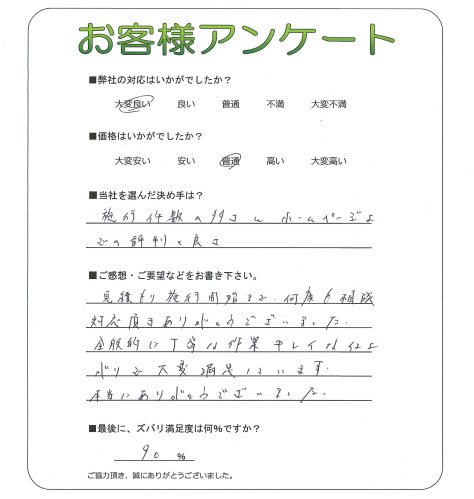 お客様アンケート
■弊社の対応はいかがでしたか？
大変良い 良い 普通 不満 大変不満
■価格はいかがでしたか？
大変安い 安い 普通 高い 大変高い
■当社を選んだ決め手は？
施行件数の多さ ホームページ
での評判の良さ
■ご感想・ご要望などをお書き下さい。
見積もり施行開始まで、何度も相談
対応頂きありがとうございました。
全般的に丁寧な作業 キレイな仕上
がりで大変満足しています。
本当にありがとうございました。
■最後に、ズバリ満足度は何％ですか？
90 %
ご協力頂き、誠にありがとうございました。